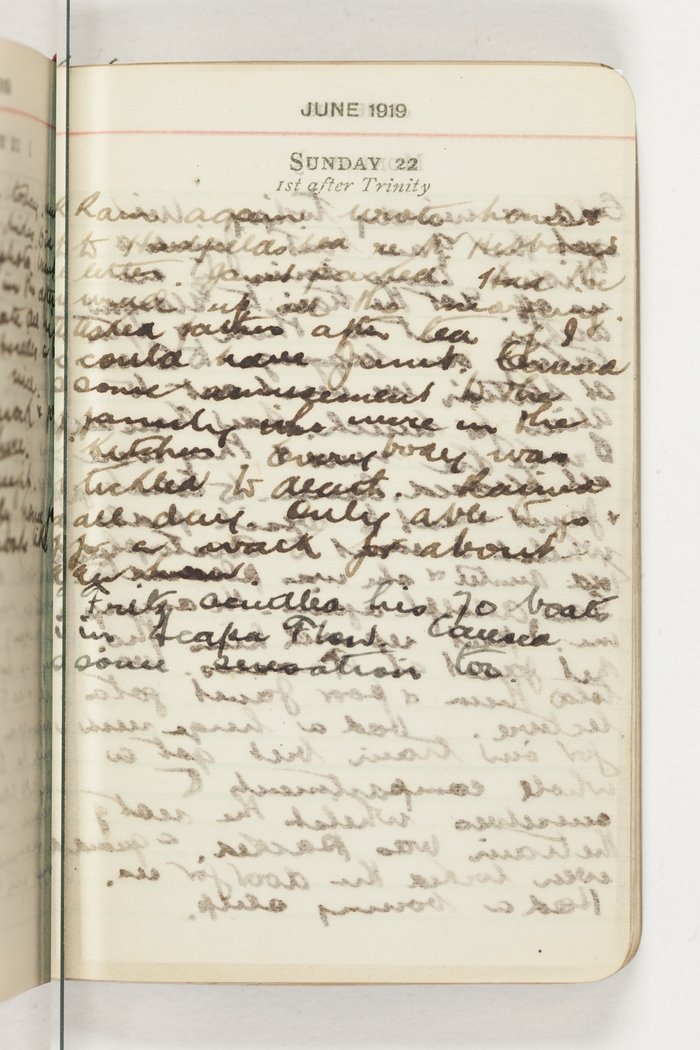 JUNE 1919
SUNDAY 22
1st after Trinity
Rain again wrote home &
to re Mr
letter. Janet packed. Had the
wind up in the
asked father after tea if I
could have Janet. Caused
some amusement to the
family who were in the
Kitchen everybody was
tickled to death. Rained
all day. Only able to go
for a walk for about
an hour.
Fritz scuttled his 70 boats
in Scapa Flow. Caused
some sensation too.